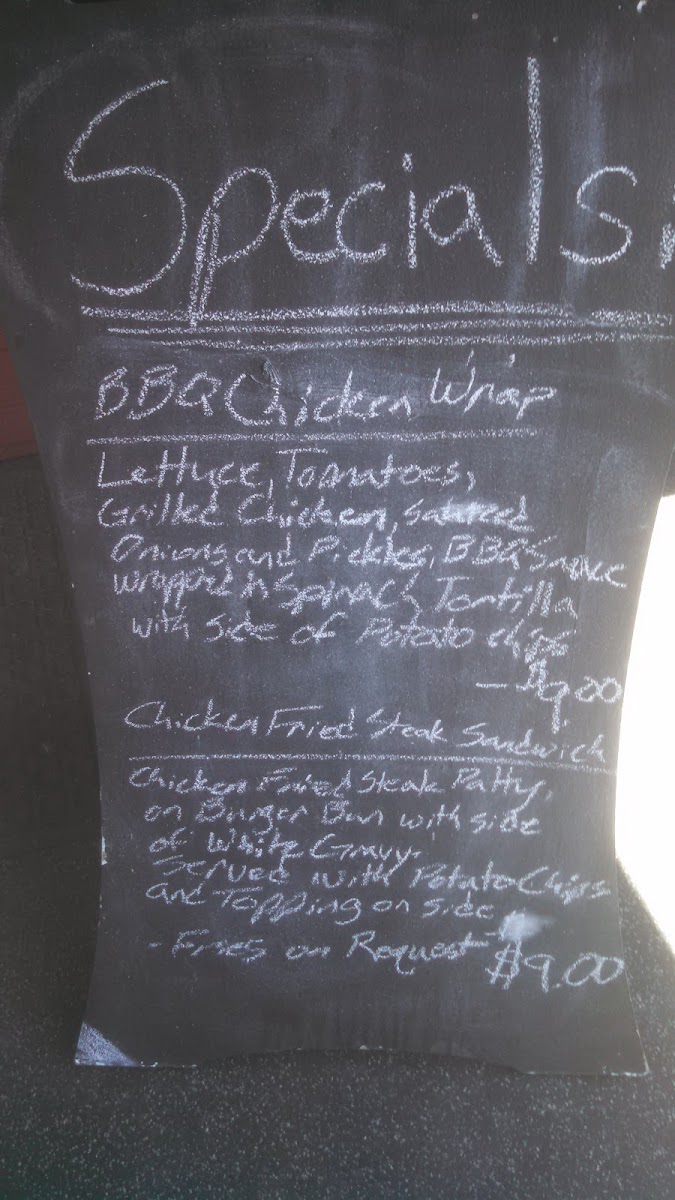 Specials:
BBQ Chicken Wrap
Lettuce, Tomatoes,
Grilled Chicken, Sauteed
Onions and Pickles, BBQ Sauce
wrapped in Spinach Tortilla
with side of Potato chips
- $9.00
Chicken Fried Steak Sandwich
Chicken Fried Steak Patty,
on Burger Bun with side
of White Gravy.
Served with Potato Chips
and Topping on side
- Fries on Request $9.00